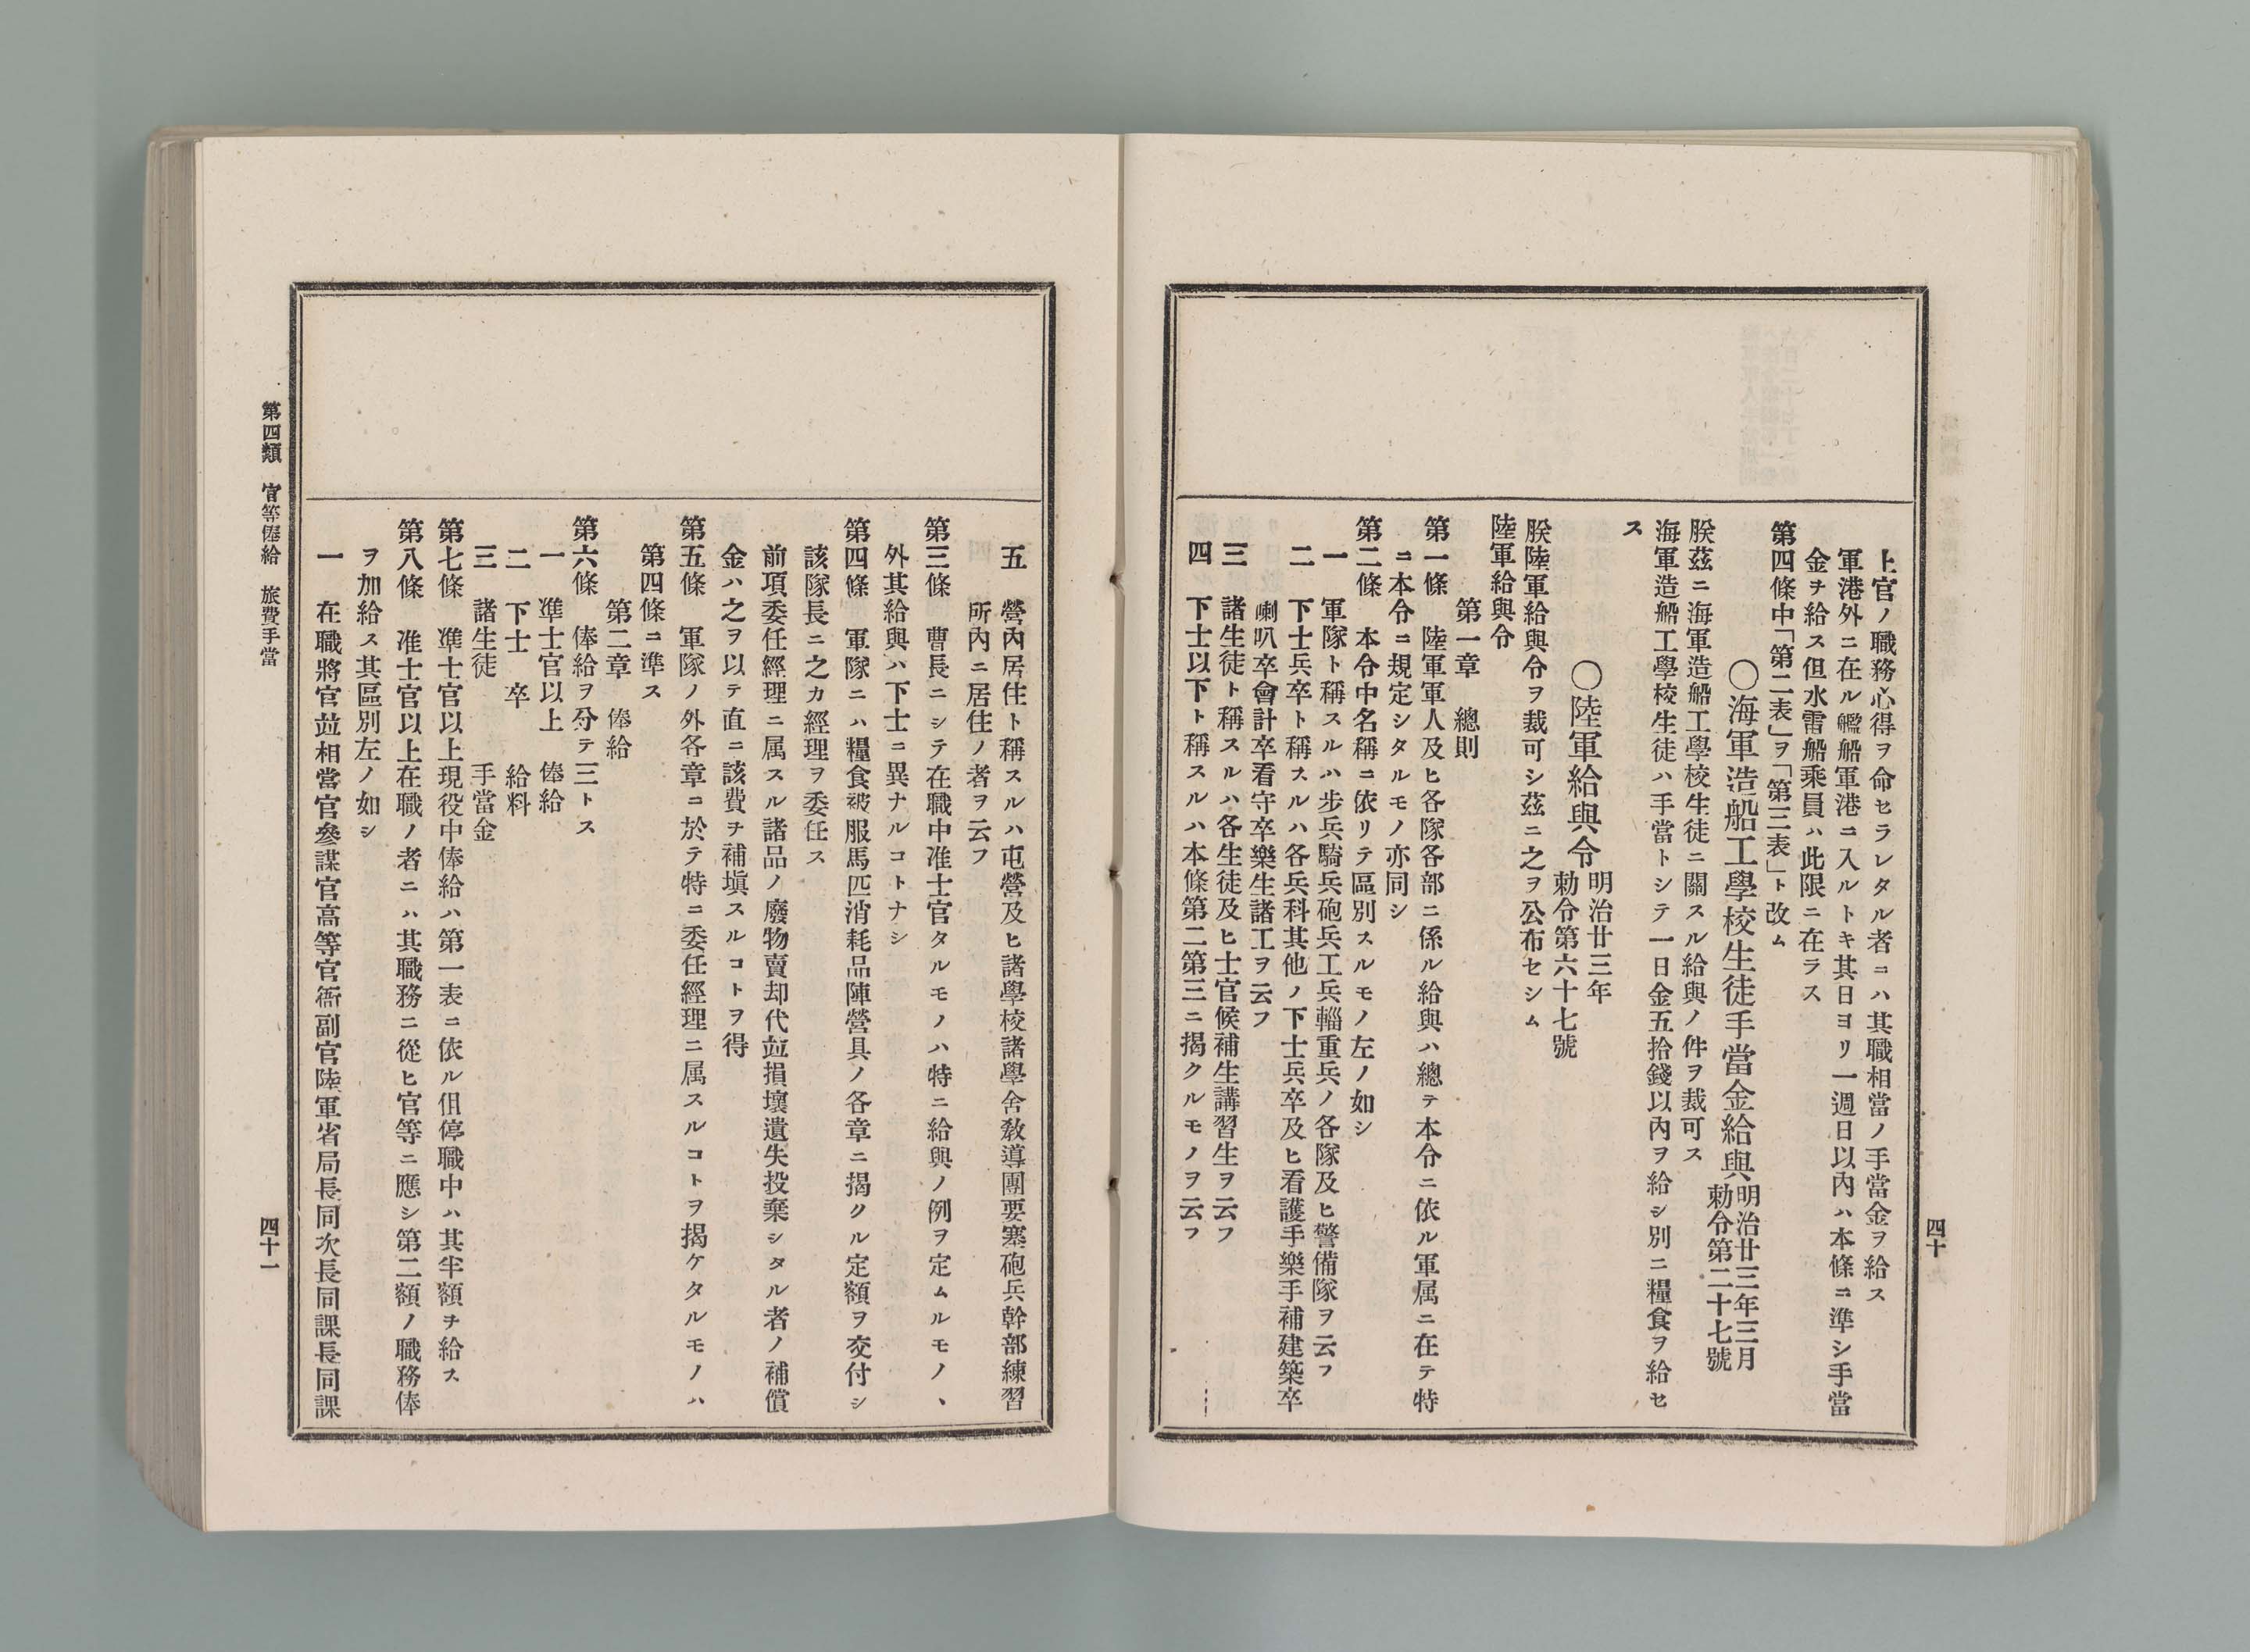 上官ノ職務心得ヲ命セラレタル者ニハ其職相當ノ手當金ヲ給ス
軍港外ニ在ル艦船軍港ニ入ルトキ其日ヨリ一週日以內ハ本條ニ準シ手當
金ヲ給ス但水雷船乘員ハ此限ニ在ラス
第四條中「第二表」ヲ「第三表」ト改ム
〇海軍造船工學校生徒手當金給與明治廿三年三月
勅令第二十七號
朕茲ニ海軍造船工學校生徒ニ關スル給與ノ件ヲ裁可ス
海軍造船工學校生徒ハ手當トシテ一日金五拾錢以內ヲ給シ別ニ糧食ヲ給セ
ス
〇陸軍給與令明治廿三年
勅令第六十七號
朕陸軍給與令ヲ裁可シ茲ニ之ヲ公布セシム
陸軍給與令
第一章　總則
第一條　陸軍軍人及ヒ各隊各部ニ係ル給與ハ總テ本令ニ依ル軍属ニ在テ特
ニ本令ニ規定シタルモノ亦同シ
第二條　本令中名稱ニ依リテ區別スルモノ左ノ如シ
一　軍隊ト稱スルハ步兵騎兵砲兵工兵輜重兵ノ各隊及ヒ警備隊ヲ云フ
二　下士兵卒ト稱スルハ各兵科其他ノ下士兵卒及ヒ看護手樂手補建築卒
喇叭卒會計卒看守卒樂生諸工ヲ云フ
三　諸生徒ト稱スルハ各生徒及ヒ士官候補生講習生ヲ云フ
四　下士以下ト稱スルハ本條第二第三ニ揭クルモノヲ云フ
四十
五　營內居住ト稱スルハ屯營及ヒ諸學校諸學舍敎導團要塞砲兵幹部練習
所內ニ居住ノ者ヲ云フ
第三條　曹長ニシテ在職中准士官タルモノハ特ニ給與ノ例ヲ定ムルモノヽ
外其給與ハ下士ニ異ナルコトナシ
第四條　軍隊ニハ糧食被服馬匹消耗品陣營具ノ各章ニ揭クル定額ヲ交付シ
該隊長ニ之カ經理ヲ委任ス
前項委任經理ニ属スル諸品ノ廢物賣却代竝損壞遺失投棄シタル者ノ補償
金ハ之ヲ以テ直ニ該費ヲ補塡スルコトヲ得
第五條　軍隊ノ外各章ニ於テ特ニ委任經理ニ属スルコトヲ揭ケタルモノハ
第四條ニ準ス
第二章　俸給
第六條　俸給ヲ分テ三トス
一　準士官以上　俸給
二　下士　卒　給料
三　諸生徒　手當金
第七條　準士官以上現役中俸給ハ第一表ニ依ル但停職中ハ其半額ヲ給ス
第八條　准士官以上在職ノ者ニハ其職務ニ從ヒ官等ニ應シ第二額ノ職務俸
ヲ加給ス其區別左ノ如シ
一　在職將官竝相當官參謀官高等官衙副官陸軍省局長同次長同課長同課
第四類　官等俸給　旅費手當
四十一